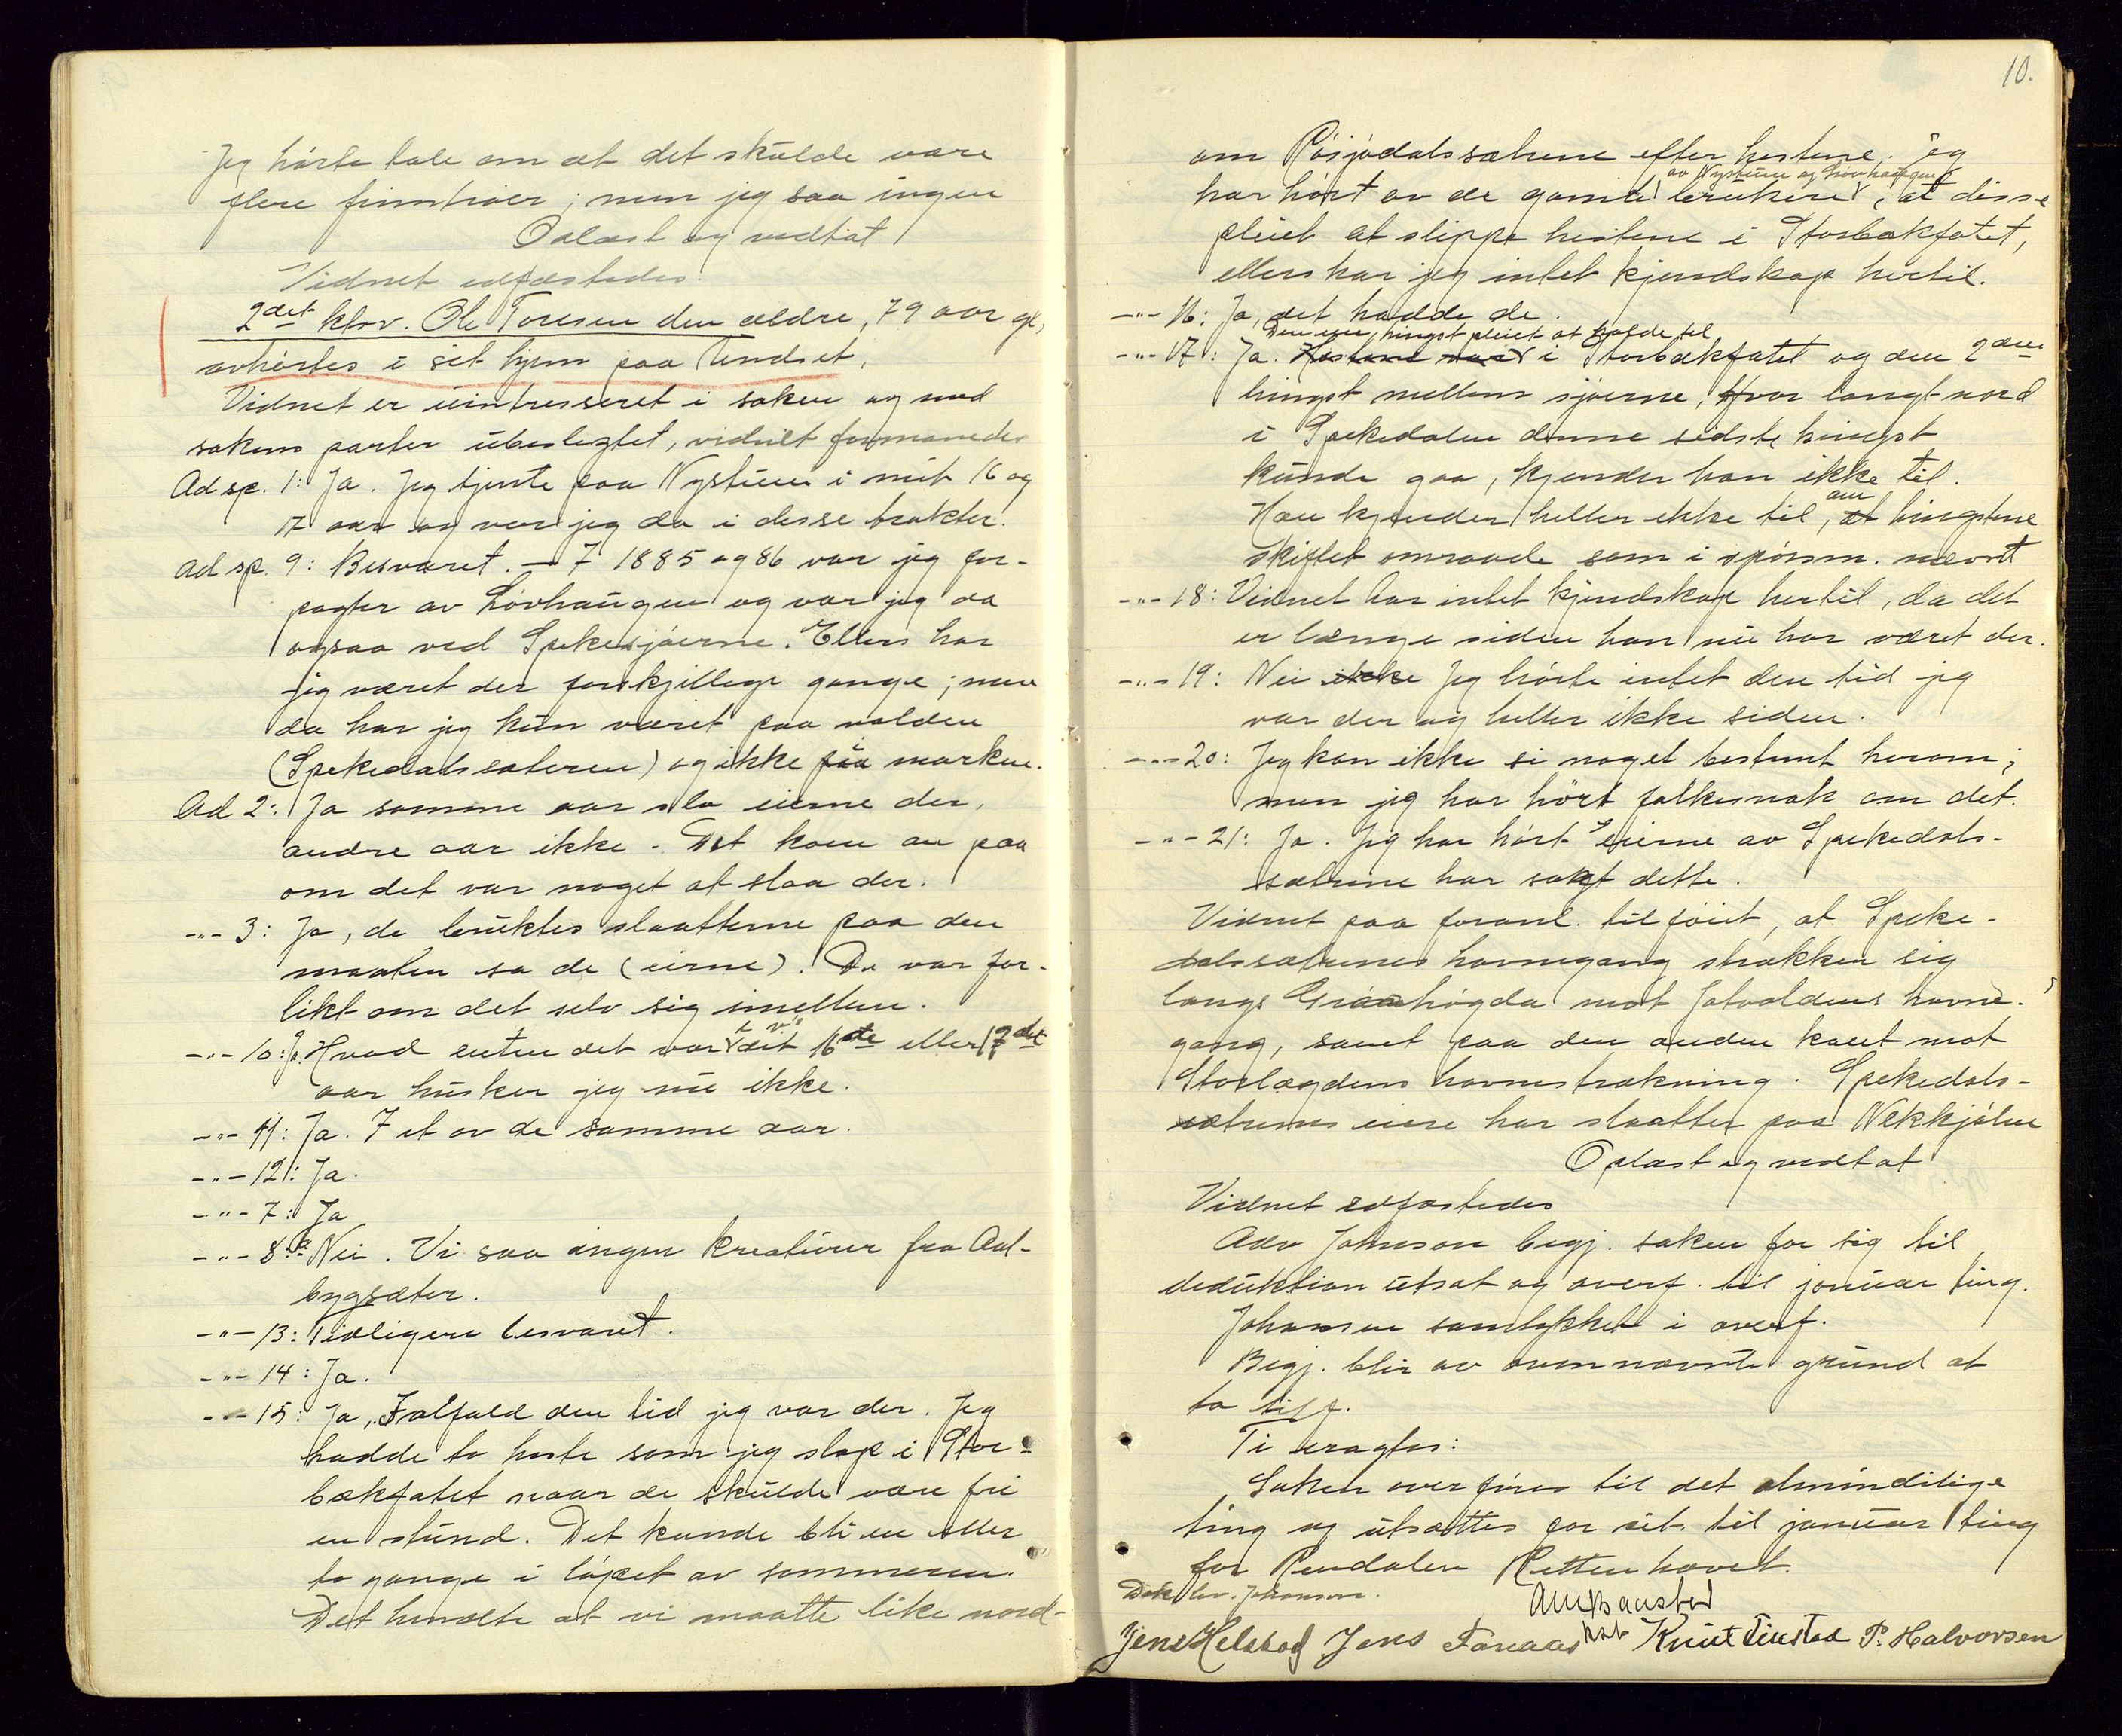 Jeg hørte tale om at det skulde være
flere finntræer; men jeg saa ingen
Oplæst og vedtat
Vidnet edfæstedes.
2det kbv. Ole Toresen den ældre, 79 aar gl,
avhørtes i sit hjem paa Undset.
Vidnet er uintresseret i saken og med
sakens parter ubeslegtet, vidnet formanedes
Ad sp. 1: Ja. Jeg tjente paa Nystuen i mit 16 og
17 aar og var jeg da i disse trakter.
Ad sp. 9: Besvaret. – I 1885 og 86 var jeg for-
pagter av Løvhaugen og var jeg da
ogsaa ved Spekesjøerne. Ellers har
jeg været der forskjellige gange; men
da har jeg kun været paa volden
(Spekedalssæteren) og ikke i marken.
Ad 2: Ja somme aar slo eierne der,
andre aar ikke. Det kom an paa
om det var noget at slaa der.
-"- 3: Ja, de bruktes slaatterne paa den
maaten sa de (eierne). De var for-
likt om det selv sig imellem.
-"- 10: Ja. Hvad enten det var i mit 16de eller 17det
aar husker jeg nu ikke.
-"- 11: Ja. I et av de samme aar.
-"- 12: Ja.
-"- 7: Ja
-"- 8: Nei. Vi saa ingen kreaturer fra Aal-
bygsæter.
-"- 13: Tidligere besvaret.
-"- 14: Ja.
-"- 15: Ja, Ialfald den tid jeg var der. Jeg
hadde to heste som jeg slap i Stor-
bækfatet naar de skulde være fri
en stund. Det kunde bli en eller
to gange i løpet av sommeren.
Det hendte at vi maatte like nord-
10.
om Røsjødalssætrene efter hestene. Jeg
av Nystuen og Løvhaugen
har hørt av de gamle brukere, at disse
pleiet at slippe hestene i Storbækfatet,
ellers har jeg intet kjendskap hertil.
-"- 16: Ja, det hadde de.
Den ene hingst pleiet at holde til
-"- 17: Ja. Hestene var i Storbækfatet og den 2den
hingst mellem sjøerne, Hvor langt nord
i Spekedalen denne sidste hingst
kunde gaa, kjender han ikke til.
om
Han kjender heller ikke til, at hingstene
skiftet omraade som i spørsm. nævnt
-"- 18: Vidnet har intet kjendskap hertil, da det
er længe siden han nu har været der.
-"- 19: Nei ikke Jeg hørte intet den tid jeg
var der og heller ikke siden.
-"- 20: Jeg kan ikke si noget bestemt herom;
men jeg har hørt folkesnak om det.
-"- 21: Ja. Jeg har hørt eierne av Spekedals-
sætrene har sagt dette.
Vidnet paa foranl. tilføiet, at Speke-
dalssætrenes havnegang strakker sig
langs Graahøgda mot Jotvoldens havne-
gang, samt paa den anden kant mot
Storlægdens havnestrækning. Spekedals-
sætrenes eiere har slaatter paa Nekkjølen
Oplæst og vedtat
Vidnet edfæstedes
Adv Johnson begj. saken for sig til
deduktion utsat og overf. til januar ting.
Johansen samtykket i overf.
Begj. blir av ovennævnte grund at
ta tilf.
Ti eragtes:
Saken overføres til det almindelige
ting og utsættes for sit til januar ting
for Rendalen Retten hævet.
Johnson.
Jens Helstad Jens Fanaas Knut Finstad P. Halvorsen